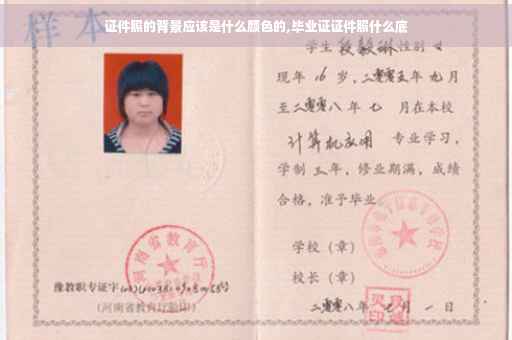 证件照的背景应该是什么颜色的,毕业证证件照什么底
样本
学生段毅琳性别女
现年16岁,二零零五年九月
至二零零八年七月在本校
计算机应用专业学习,
学制三年,修业期满,成绩
合格,准予毕业
学校（章）
河南省教育厅
校长（章）
豫教职专证字
(河南省教育厅验印)
二零零八年七月一日